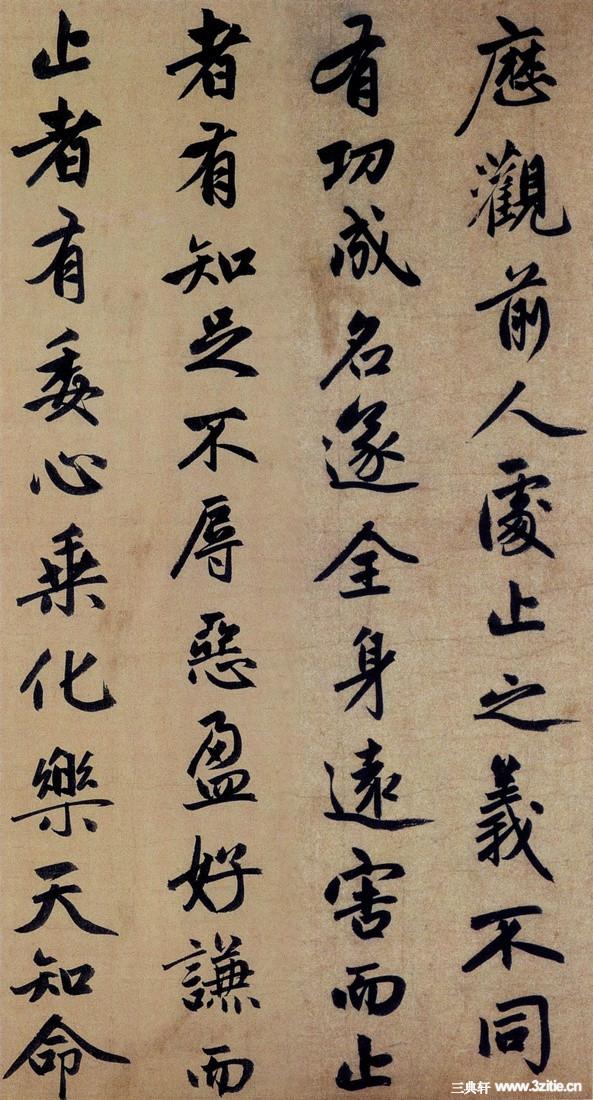 歷觀前人處止之義不同
有功成名遂全身遠害而止
者有知足不辱惡盈好謙而
止者有委心乗化樂天知命
三典轩 www.3zitie.cn